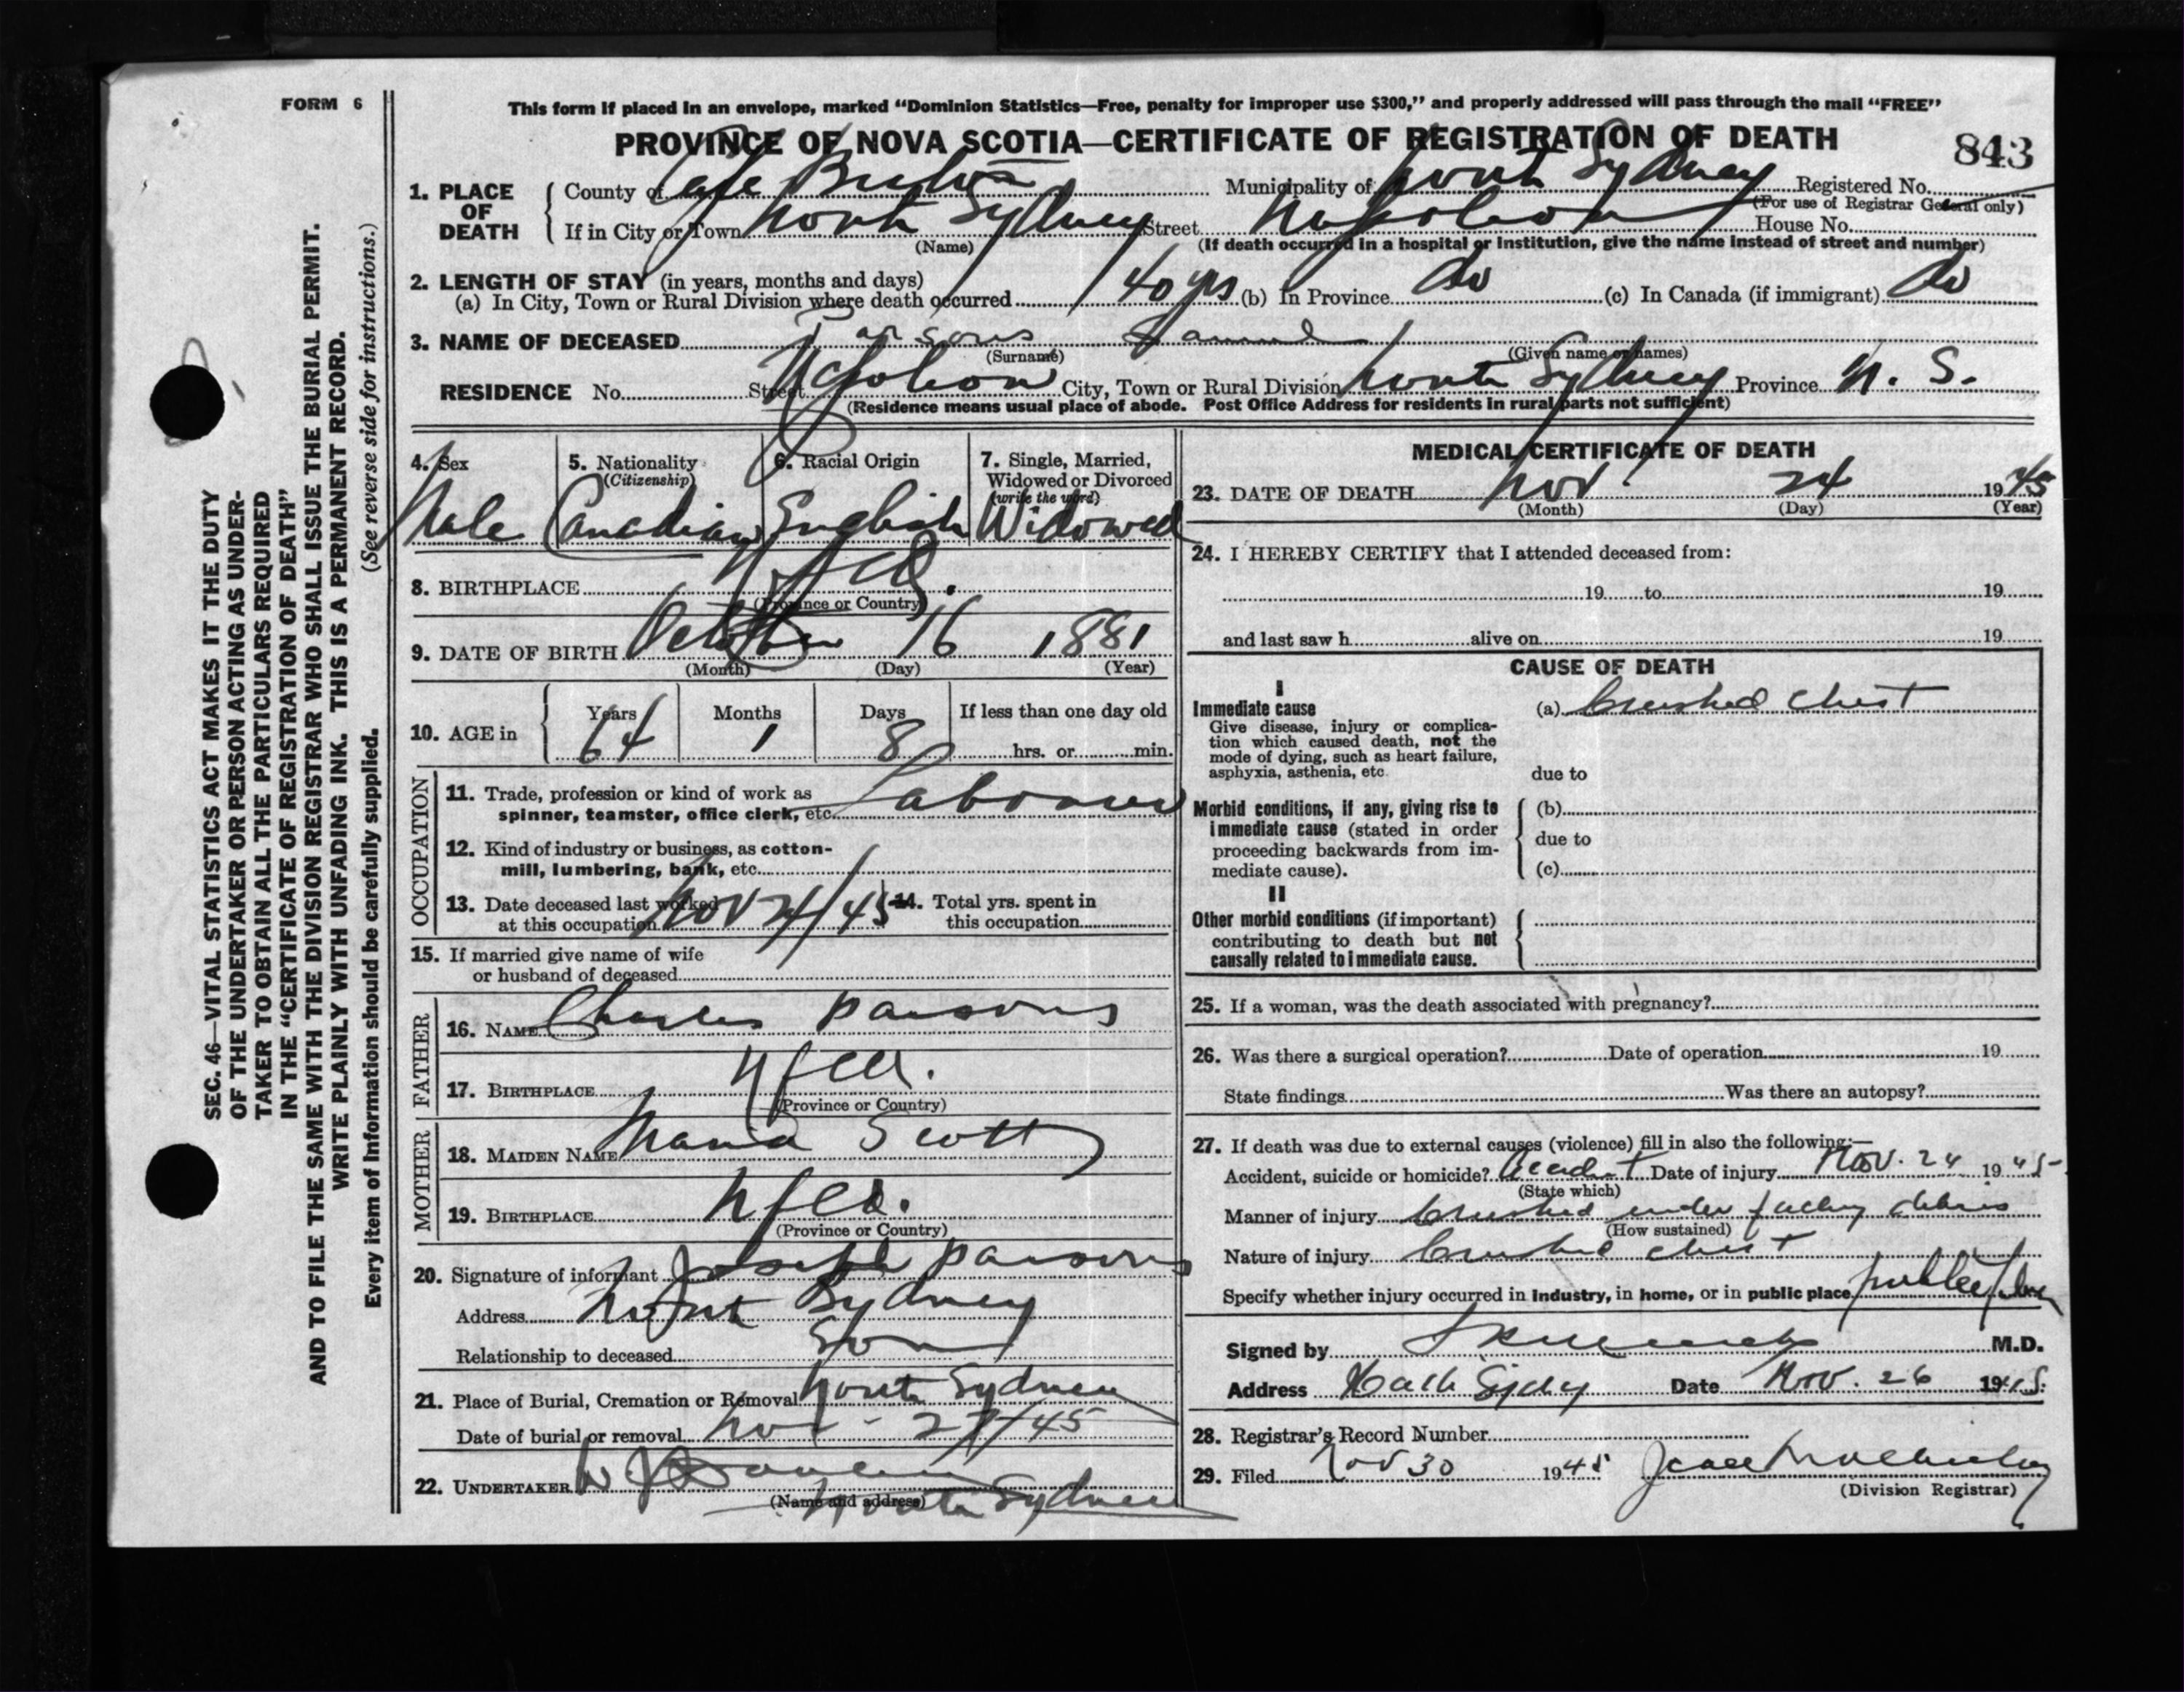 FORM 6
This form if placed in an envelope, marked “Dominion Statistics—Free, penalty for improper use $300,” and properly addressed will pass through the mail “FREE”
PROVINCE OF NOVA SCOTIA—CERTIFICATE OF REGISTRATION OF DEATH
843
1. PLACE OF DEATH
County of Cape Breton Municipality of North Sydney Registered No.
(For use of Registrar General only)
If in City or Town North Sydney Street Napoleon House No.
(Name) (If death occurred in a hospital or institution, give the name instead of street and number)
2. LENGTH OF STAY (in years, months and days)
(a) In City, Town or Rural Division where death occurred 40 yrs (b) In Province do (c) In Canada (if immigrant) do
3. NAME OF DECEASED Parsons Samuel
(Surname) (Given name or names)
RESIDENCE No. Street Napoleon City, Town or Rural Division North Sydney Province N. S.
(Residence means usual place of abode. Post Office Address for residents in rural parts not sufficient)
4. Sex
Male
5. Nationality
(Citizenship)
Canadian
6. Racial Origin
English
7. Single, Married,
Widowed or Divorced
(write the word)
Widowed
8. BIRTHPLACE Nfld.
(Province or Country)
9. DATE OF BIRTH October 16 1881
(Month) (Day) (Year)
10. AGE in
Years Months Days If less than one day old
64 1 8 hrs. or min.
OCCUPATION
11. Trade, profession or kind of work as
spinner, teamster, office clerk, etc. Labourer
12. Kind of industry or business, as cotton-
mill, lumbering, bank, etc.
13. Date deceased last worked
at this occupation Nov 24/45
14. Total yrs. spent in
this occupation
15. If married give name of wife
or husband of deceased
FATHER
16. NAME Charles Parsons
17. BIRTHPLACE Nfld.
(Province or Country)
MOTHER
18. MAIDEN NAME Maria Scott
19. BIRTHPLACE Nfld.
(Province or Country)
20. Signature of informant Joseph Parsons
Address North Sydney
Relationship to deceased Son
21. Place of Burial, Cremation or Removal North Sydney
Date of burial or removal Nov - 27/45
22. UNDERTAKER W J
(Name and address)
North Sydney
MEDICAL CERTIFICATE OF DEATH
23. DATE OF DEATH Nov 24 1945
(Month) (Day) (Year)
24. I HEREBY CERTIFY that I attended deceased from:
19 to 19
and last saw h alive on 19
CAUSE OF DEATH
I
Immediate cause
Give disease, injury or complica-
tion which caused death, not the
mode of dying, such as heart failure,
asphyxia, asthenia, etc.
(a) Crushed Chest
due to
Morbid conditions, if any, giving rise to
immediate cause (stated in order
proceeding backwards from im-
mediate cause).
(b)
due to
(c)
II
Other morbid conditions (if important)
contributing to death but not
causally related to immediate cause.
25. If a woman, was the death associated with pregnancy?
26. Was there a surgical operation? Date of operation 19
State findings Was there an autopsy?
27. If death was due to external causes (violence) fill in also the following:—
Accident, suicide or homicide? Accident Date of injury Nov. 24 1945
(State which)
Manner of injury Crushed under falling debris
(How sustained)
Nature of injury Crushed chest
Specify whether injury occurred in industry, in home, or in public place public place
Signed by M.D.
Address North Sydney Date Nov. 26 1945
28. Registrar's Record Number
29. Filed Nov 30 1945
(Division Registrar)
SEC. 46—VITAL STATISTICS ACT MAKES IT THE DUTY
OF THE UNDERTAKER OR PERSON ACTING AS UNDER-
TAKER TO OBTAIN ALL THE PARTICULARS REQUIRED
IN THE “CERTIFICATE OF REGISTRATION OF DEATH”
AND TO FILE THE SAME WITH THE DIVISION REGISTRAR WHO SHALL ISSUE THE BURIAL PERMIT.
WRITE PLAINLY WITH UNFADING INK. THIS IS A PERMANENT RECORD.
Every item of information should be carefully supplied. (See reverse side for instructions.)